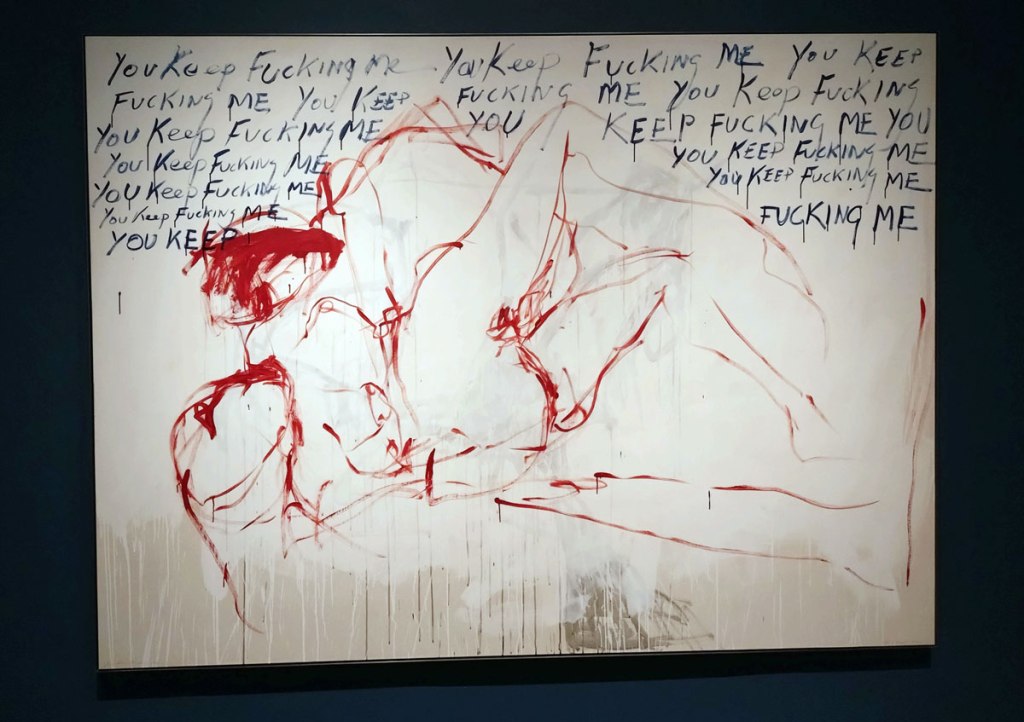 You Keep Fucking Me You Keep Fucking ME You KEEP
FUCKING ME You KEEP FUCKING ME You Keep Fucking
You Keep FUCKING ME YOU KEEP FUCKING ME YOU
You Keep Fucking ME YOU KEEP FUCKING ME
You Keep Fucking ME You KEEP Fucking ME
You Keep Fucking ME FUCKING ME
YOU KEEP